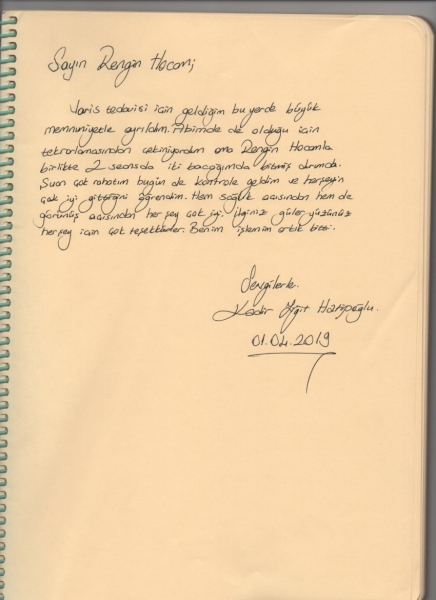 Sayın Rengin Hocam;
Varis tedavisi için geldiğim bu yerde büyük
memnuniyetle ayrıldım. Abimde de olduğu için
tekrarlamasından çekiniyordum ama Rengin Hocamla
birlikte 2 seansda iki bacağımda bitmiş durumda.
Şuan çok rahatım bugün de kontrole geldim ve herşeyin
çok iyi gittiğini öğrendim. Hem sağlık açısından hem de
görünüş açısından her şey çok iyi. İlginiz güler yüzünüz
her şey için çok teşekkürler. Benim işlemim artık bitti.
Sevgilerle.
Kadir Yiğit
01.04.2019